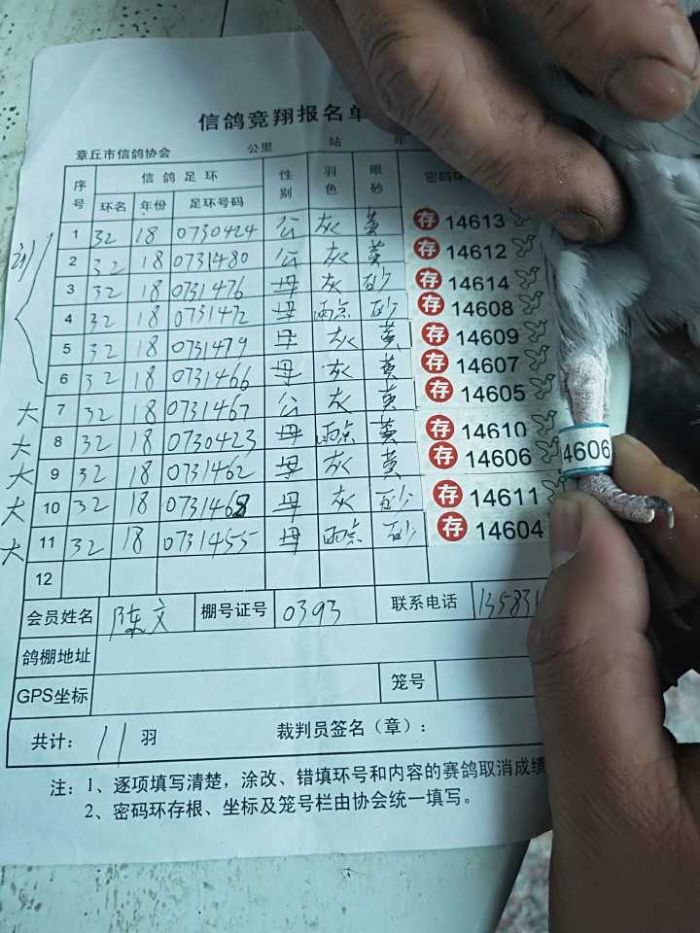 信鸽竞翔报名单
章丘市信鸽协会 公里 站 年
序号 信鸽足环 性别 羽色 眼砂 密码环
环名 年份 足环号码
1 32 18 0730424 公 灰 黄 存 14613
2 32 18 0731480 公 灰 黄 存 14612
3 32 18 0731476 母 灰 砂 存 14614
4 32 18 0731472 母 雨点 砂 存 14608
5 32 18 0731479 母 灰 黄 存 14609
6 32 18 0731466 母 灰 黄 存 14607
大 7 32 18 0731467 公 灰 黄 存 14605
大 8 32 18 0730423 母 雨点 黄 存 14610
大 9 32 18 0731462 母 灰 黄 存 14606
大 10 32 18 0731468 母 灰 砂 存 14611
大 11 32 18 0731455 母 雨点 砂 存 14604
12
4606
会员姓名 陈文 棚号证号 0393 联系电话 135831
鸽棚地址
GPS坐标 笼号
共计: 11 羽 裁判员签名(章):
注: 1、逐项填写清楚,涂改、错填环号和内容的赛鸽取消成绩
2、密码环存根、坐标及笼号栏由协会统一填写。